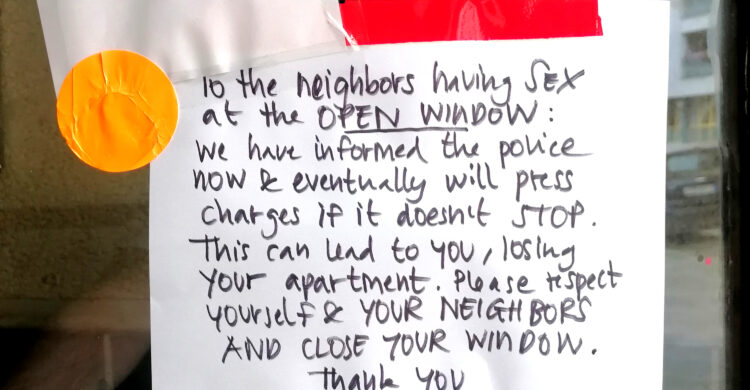 To the neighbors having SEX
at the OPEN WINDOW:
we have informed the police
now & eventually will press
charges if it doesn't STOP.
This can lead to you, losing
your apartment. Please respect
yourself & YOUR NEIGHBORS
AND CLOSE YOUR WINDOW.
Thank YOU